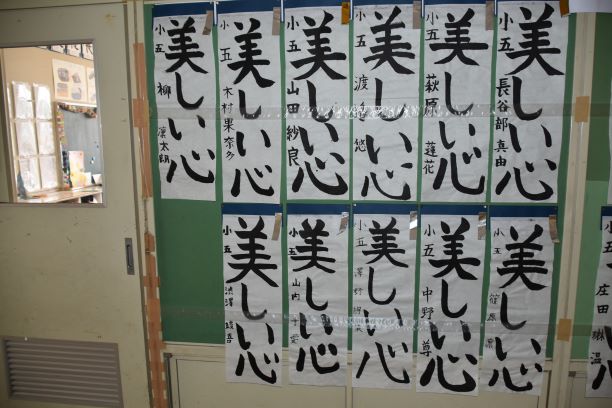 美しい心
小五
柳
美しい心
小五
木村果奈多
美しい心
小五
山田紗良
美しい心
小五
渡
悠
美しい心
小五
萩原蓮花
美しい心
小五
長谷部真由
美しい心
小五
美しい心
小五
山内
美しい心
小五
美しい心
小五
中野尊
美しい心
小五
小
庄田